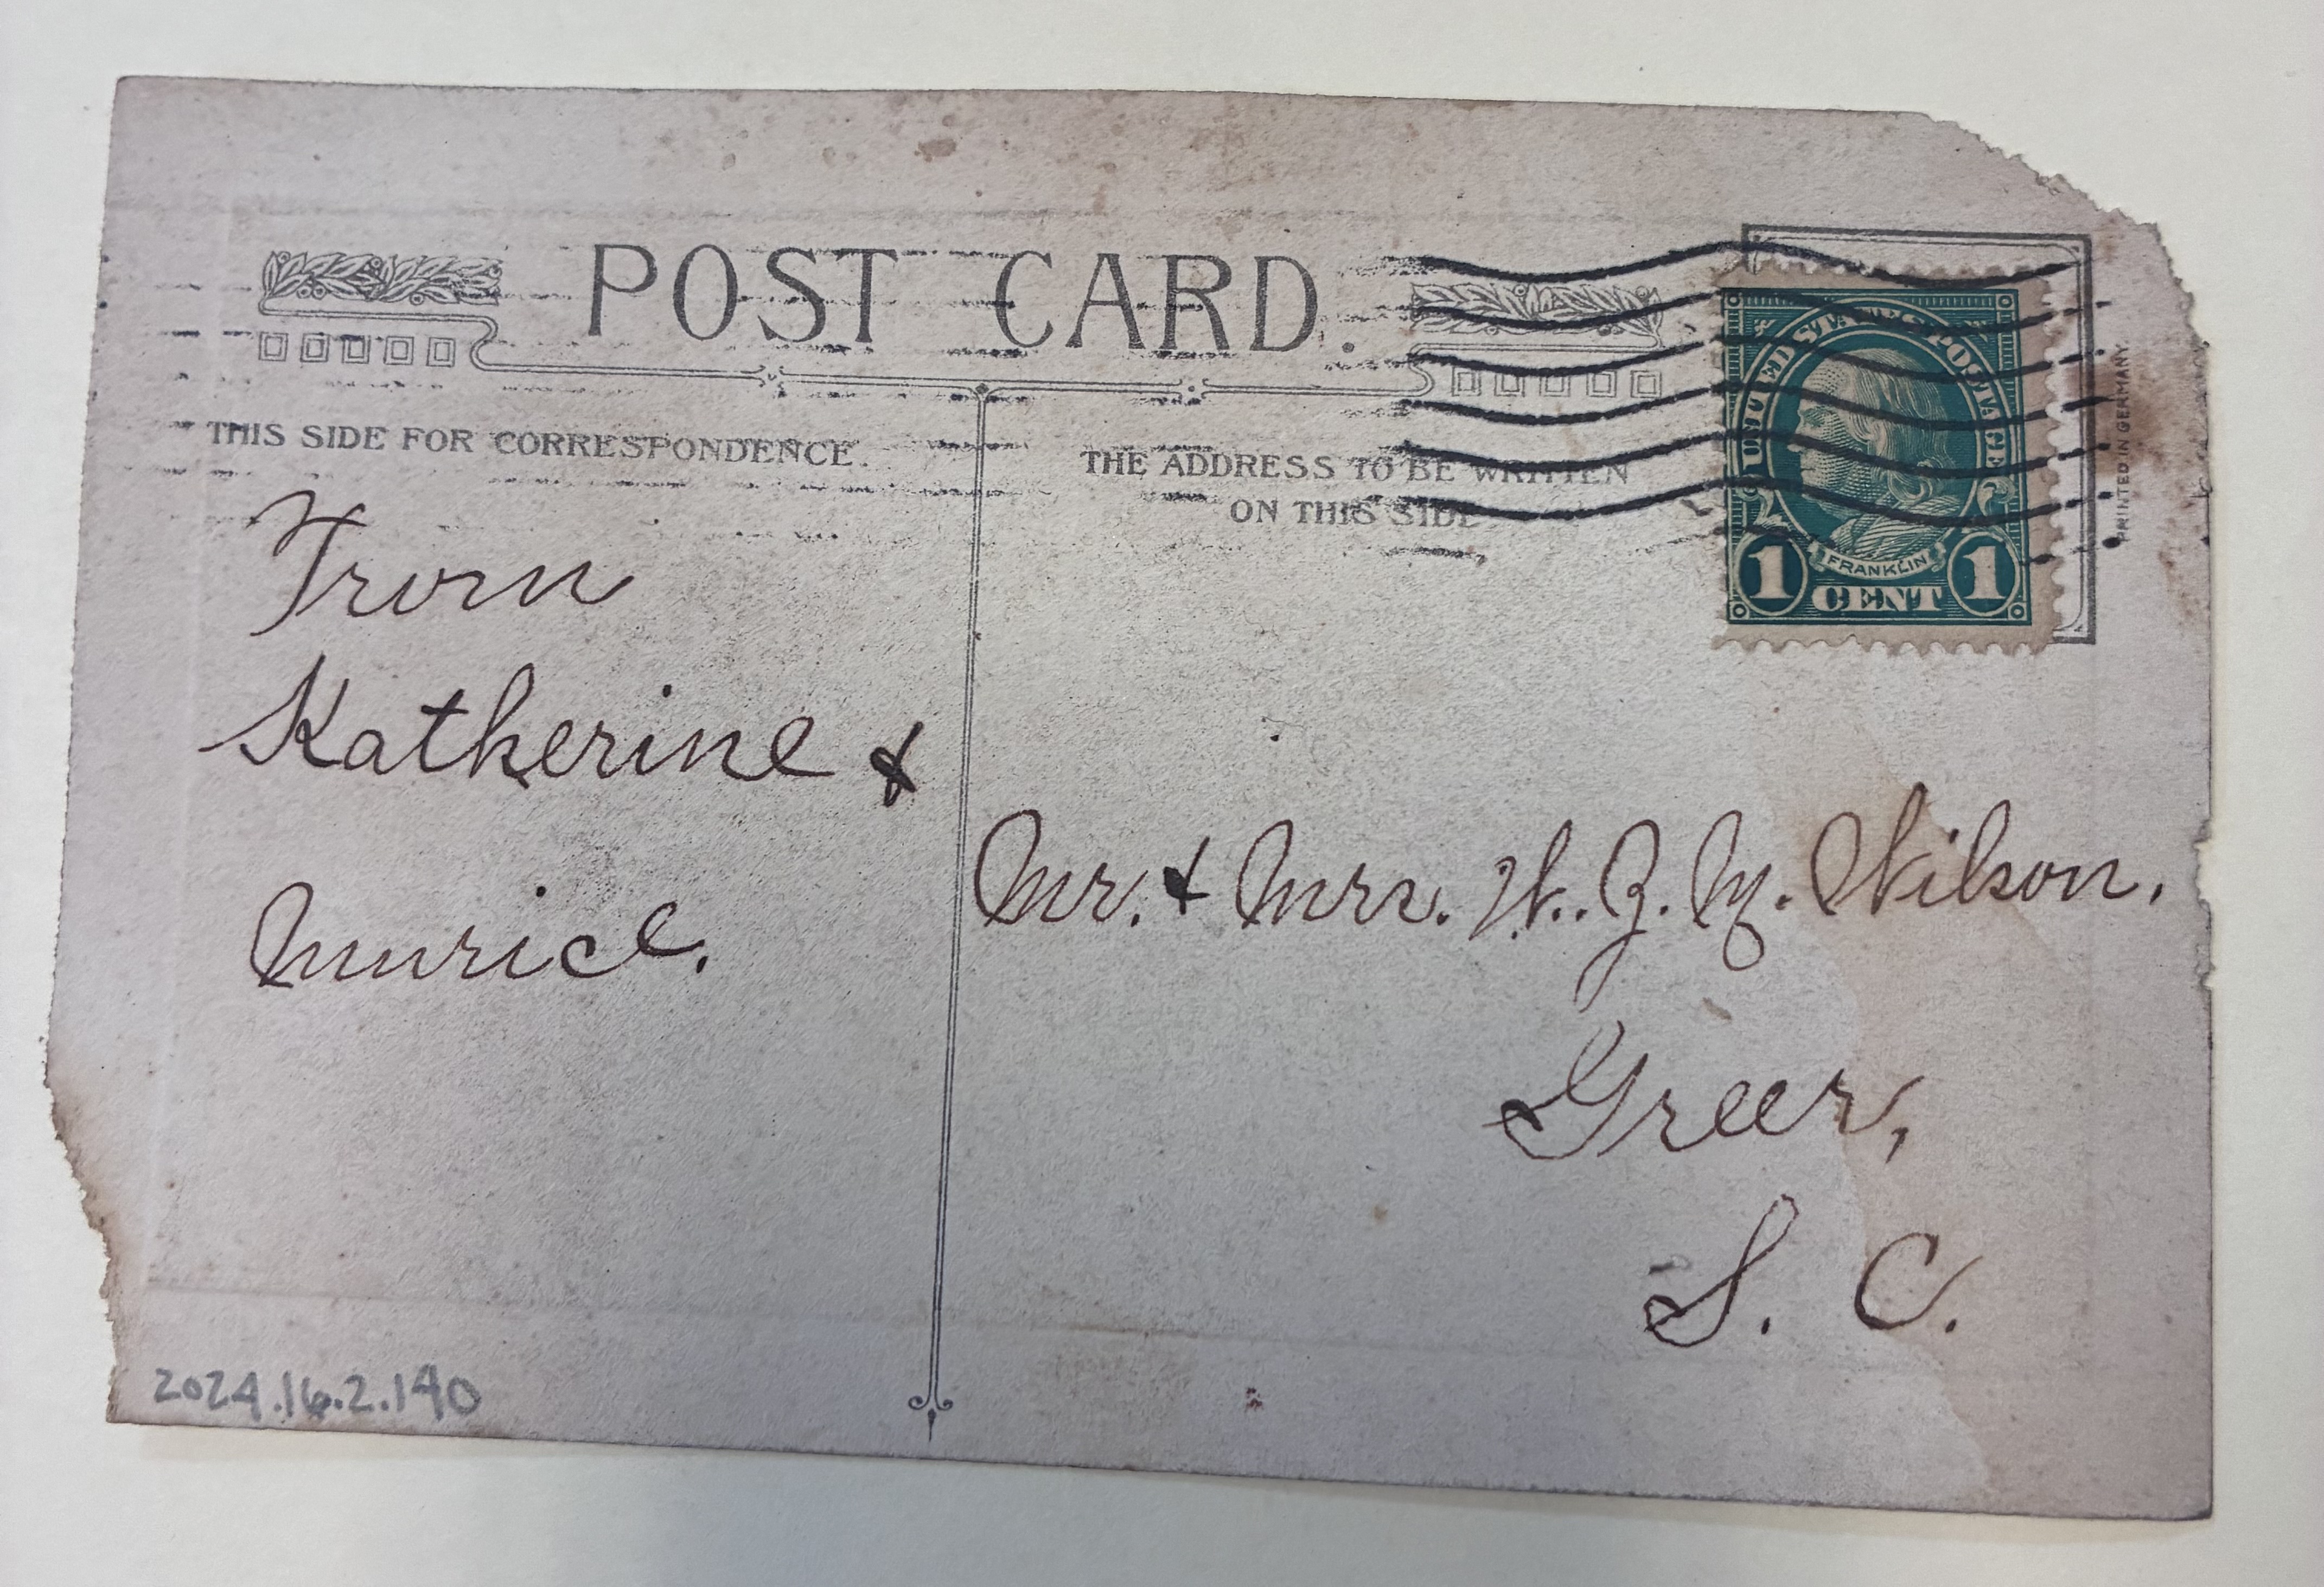 POST CARD.
THIS SIDE FOR CORRESPONDENCE.
THE ADDRESS TO BE WRITTEN
ON THIS SIDE
UNITED STATES POSTAGE
FRANKLIN
1 CENT 1
PRINTED IN GERMANY.
From
Katherine &
Murice.
Mr. & Mrs. W. Z. M. Wilson.
Greer,
S. C.
2024.16.2.140